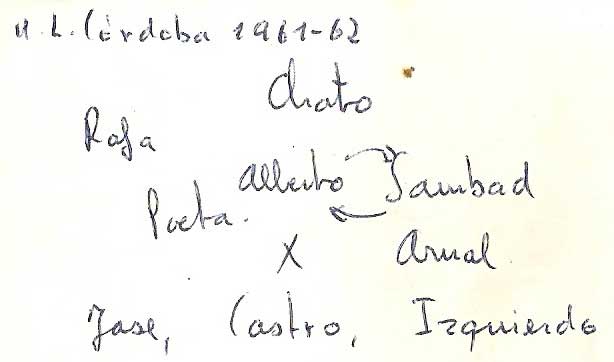 U. L. Córdoba 1961-62
Chato
Rafa
Alberto Sambad
Poeta.
X Arnal.
Jose, Castro, Izquierdo